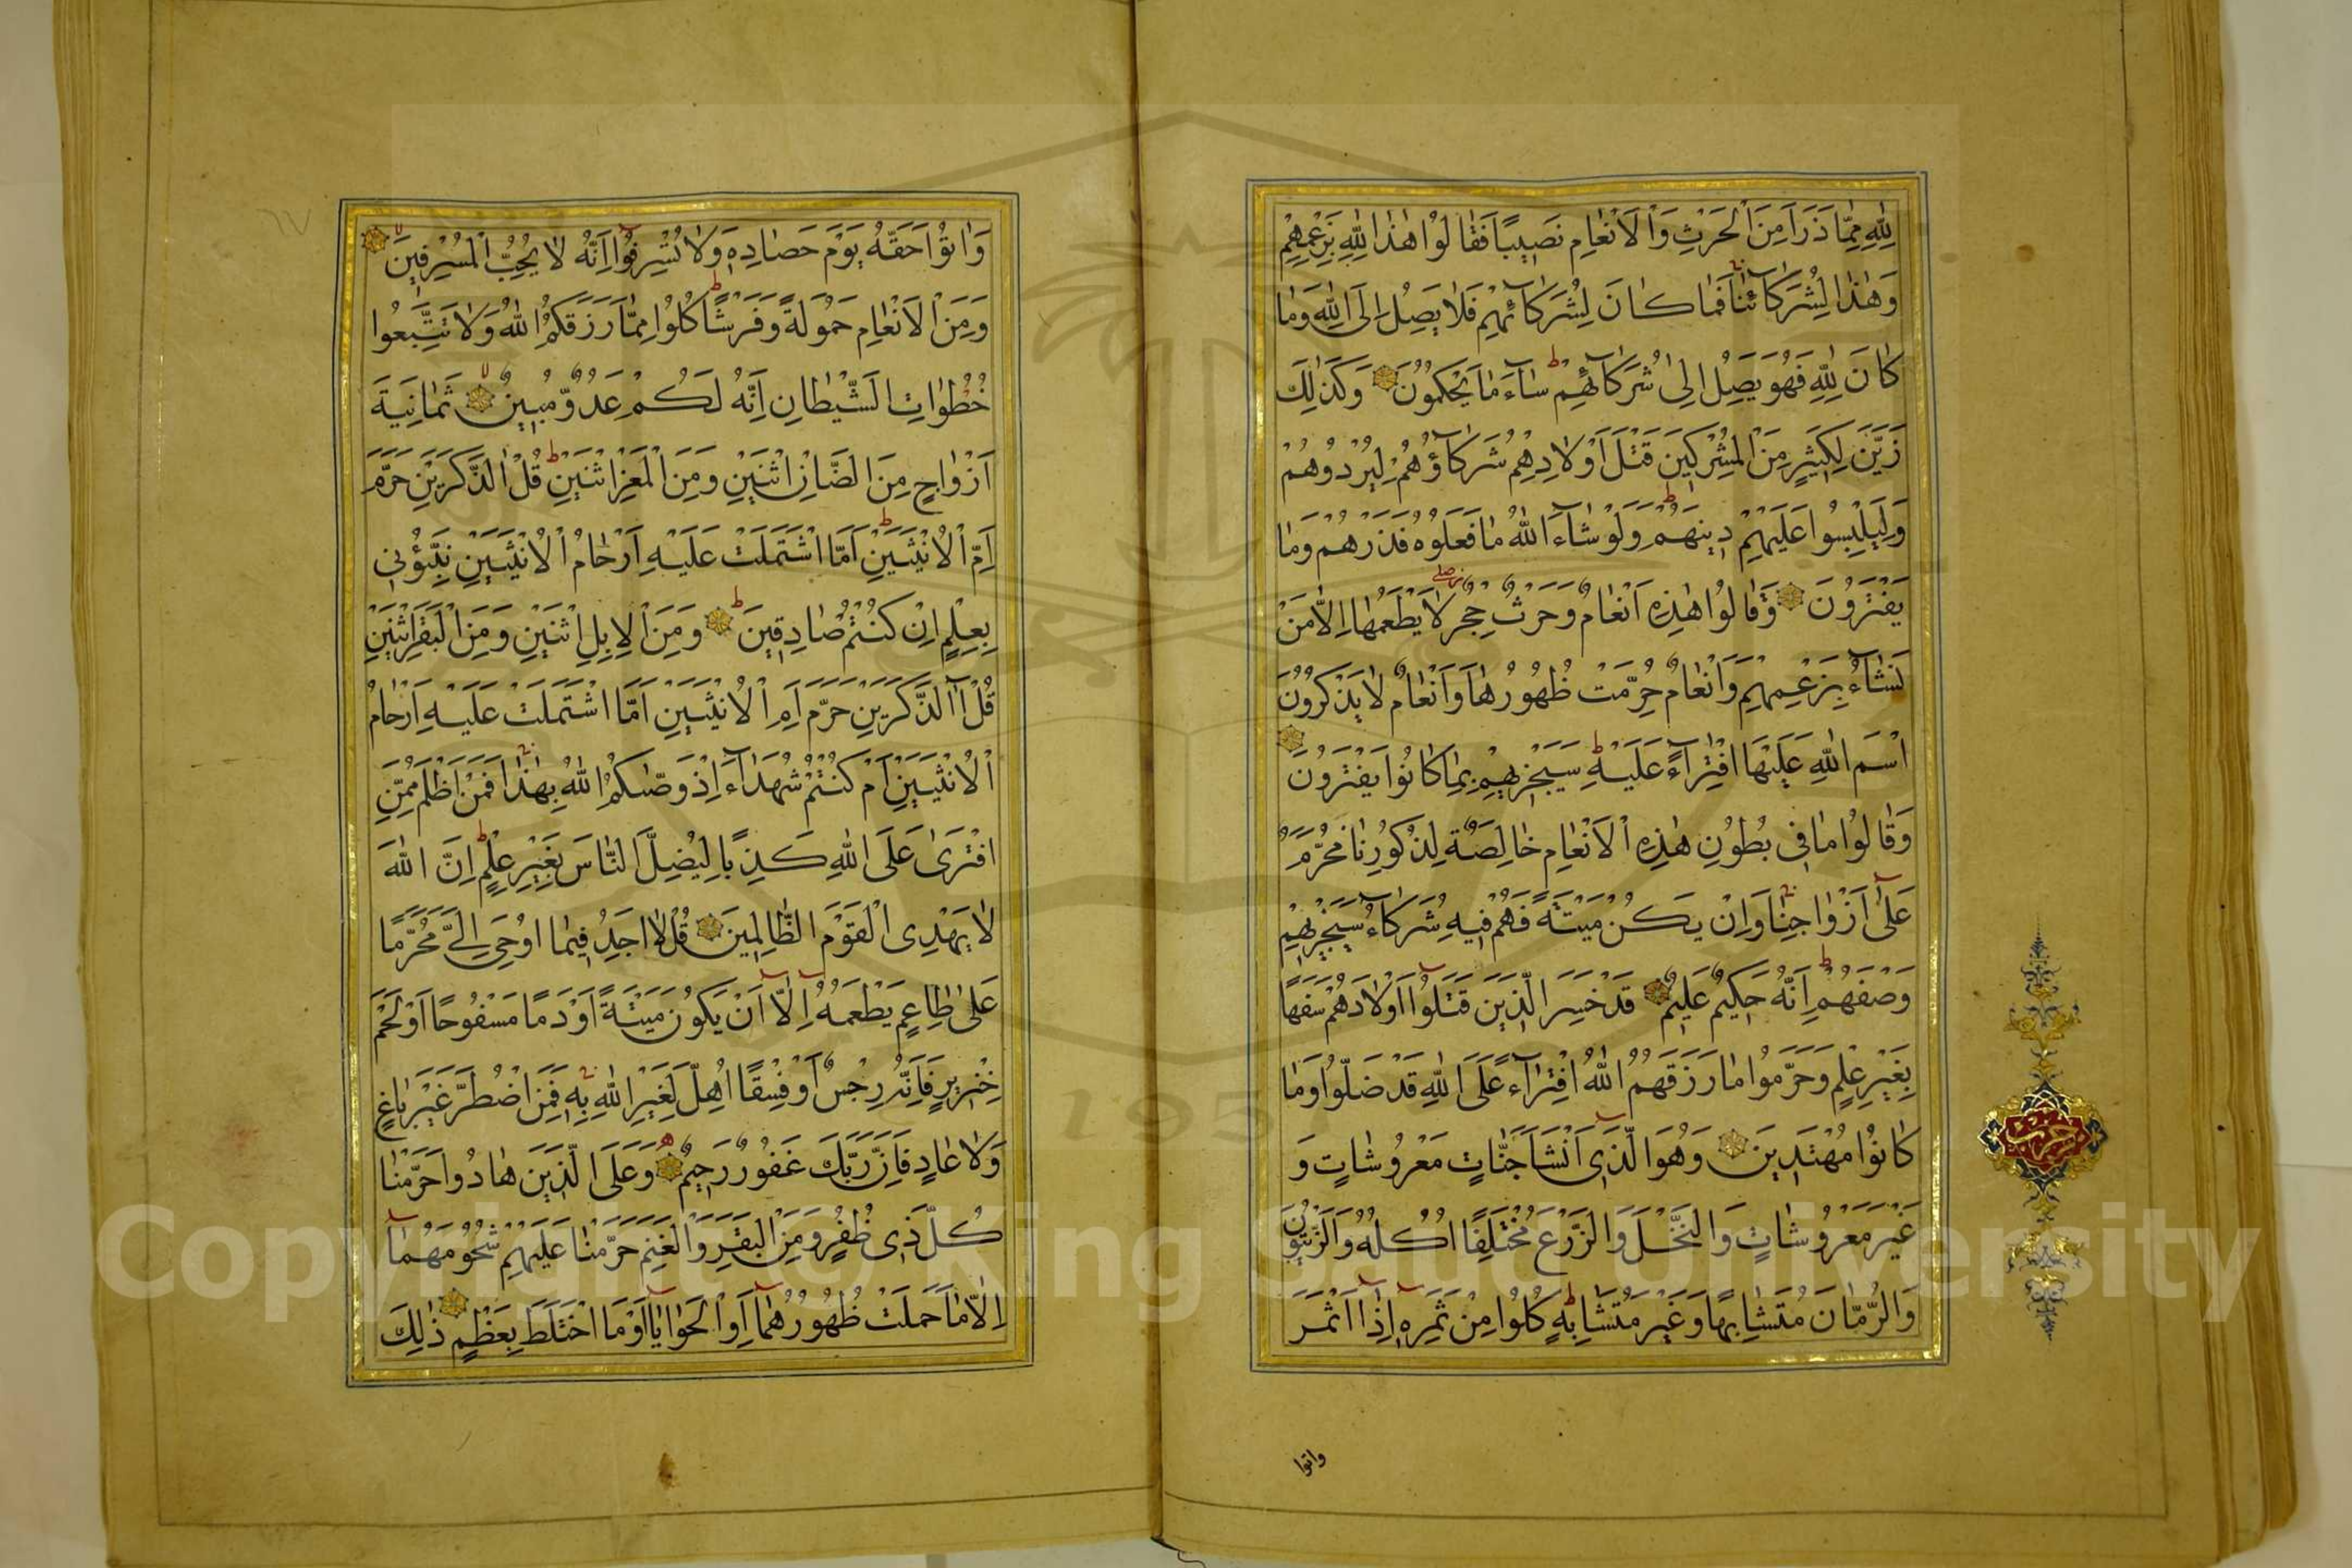 لِلّٰهِ مِمَّا ذَرَاَ مِنَ الْحَرْثِ وَالْاَنْعَامِ نَصِيبًا فَقَالُوا هٰذَا لِلّٰهِ بِزَعْمِهِمْ
وَهٰذَا لِشُرَكَائِنَا فَمَا كَانَ لِشُرَكَائِهِمْ فَلَا يَصِلُ اِلَى اللّٰهِ وَمَا
كَانَ لِلّٰهِ فَهُوَ يَصِلُ اِلٰى شُرَكَائِهِمْ سَاءَ مَا يَحْكُمُونَ وَكَذٰلِكَ
زَيَّنَ لِكَثِيرٍ مِنَ الْمُشْرِكِينَ قَتْلَ اَوْلَادِهِمْ شُرَكَاؤُهُمْ لِيُرْدُوهُمْ
وَلِيَلْبِسُوا عَلَيْهِمْ دِينَهُمْ وَلَوْ شَاءَ اللّٰهُ مَا فَعَلُوهُ فَذَرْهُمْ وَمَا
يَفْتَرُونَ وَقَالُوا هٰذِهِ اَنْعَامٌ وَحَرْثٌ حِجْرٌ لَا يَطْعَمُهَا اِلَّا مَنْ
نَشَاءُ بِزَعْمِهِمْ وَاَنْعَامٌ حُرِّمَتْ ظُهُورُهَا وَاَنْعَامٌ لَا يَذْكُرُونَ
اسْمَ اللّٰهِ عَلَيْهَا افْتِرَاءً عَلَيْهِ سَيَجْزِيهِمْ بِمَا كَانُوا يَفْتَرُونَ
وَقَالُوا مَا فِى بُطُونِ هٰذِهِ الْاَنْعَامِ خَالِصَةٌ لِذُكُورِنَا وَمُحَرَّمٌ
عَلٰى اَزْوَاجِنَا وَاِنْ يَكُنْ مَيْتَةً فَهُمْ فِيهِ شُرَكَاءُ سَيَجْزِيهِمْ
وَصْفَهُمْ اِنَّهُ حَكِيمٌ عَلِيمٌ قَدْ خَسِرَ الَّذِينَ قَتَلُوا اَوْلَادَهُمْ سَفَهًا
بِغَيْرِ عِلْمٍ وَحَرَّمُوا مَا رَزَقَهُمُ اللّٰهُ افْتِرَاءً عَلَى اللّٰهِ قَدْ ضَلُّوا وَمَا
كَانُوا مُهْتَدِينَ وَهُوَ الَّذِى اَنْشَاَ جَنَّاتٍ مَعْرُوشَاتٍ وَ
غَيْرَ مَعْرُوشَاتٍ وَالنَّخْلَ وَالزَّرْعَ مُخْتَلِفًا اُكُلُهُ وَالزَّيْتُونَ
وَالرُّمَّانَ مُتَشَابِهًا وَغَيْرَ مُتَشَابِهٍ كُلُوا مِنْ ثَمَرِهِ اِذَا اَثْمَرَ
واتوا
وَاٰتُوا حَقَّهُ يَوْمَ حَصَادِهِ وَلَا تُسْرِفُوا اِنَّهُ لَا يُحِبُّ الْمُسْرِفِينَ
وَمِنَ الْاَنْعَامِ حَمُولَةً وَفَرْشًا كُلُوا مِمَّا رَزَقَكُمُ اللّٰهُ وَلَا تَتَّبِعُوا
خُطُوَاتِ الشَّيْطَانِ اِنَّهُ لَكُمْ عَدُوٌّ مُبِينٌ ثَمَانِيَةَ
اَزْوَاجٍ مِنَ الضَّاْنِ اثْنَيْنِ وَمِنَ الْمَعْزِ اثْنَيْنِ قُلْ آلذَّكَرَيْنِ حَرَّمَ
اَمِ الْاُنْثَيَيْنِ اَمَّا اشْتَمَلَتْ عَلَيْهِ اَرْحَامُ الْاُنْثَيَيْنِ نَبِّؤُنِى
بِعِلْمٍ اِنْ كُنْتُمْ صَادِقِينَ وَمِنَ الْاِبِلِ اثْنَيْنِ وَمِنَ الْبَقَرِ اثْنَيْنِ
قُلْ آلذَّكَرَيْنِ حَرَّمَ اَمِ الْاُنْثَيَيْنِ اَمَّا اشْتَمَلَتْ عَلَيْهِ اَرْحَامُ
الْاُنْثَيَيْنِ اَمْ كُنْتُمْ شُهَدَاءَ اِذْ وَصّٰيكُمُ اللّٰهُ بِهٰذَا فَمَنْ اَظْلَمُ مِمَّنِ
افْتَرٰى عَلَى اللّٰهِ كَذِبًا لِيُضِلَّ النَّاسَ بِغَيْرِ عِلْمٍ اِنَّ اللّٰهَ
لَا يَهْدِى الْقَوْمَ الظَّالِمِينَ قُلْ لَا اَجِدُ فِيمَا اُوحِىَ اِلَىَّ مُحَرَّمًا
عَلٰى طَاعِمٍ يَطْعَمُهُ اِلَّا اَنْ يَكُونَ مَيْتَةً اَوْ دَمًا مَسْفُوحًا اَوْ لَحْمَ
خِنْزِيرٍ فَاِنَّهُ رِجْسٌ اَوْ فِسْقًا اُهِلَّ لِغَيْرِ اللّٰهِ بِهِ فَمَنِ اضْطُرَّ غَيْرَ بَاغٍ
وَلَا عَادٍ فَاِنَّ رَبَّكَ غَفُورٌ رَحِيمٌ وَعَلَى الَّذِينَ هَادُوا حَرَّمْنَا
كُلَّ ذِى ظُفُرٍ وَمِنَ الْبَقَرِ وَالْغَنَمِ حَرَّمْنَا عَلَيْهِمْ شُحُومَهُمَا
اِلَّا مَا حَمَلَتْ ظُهُورُهُمَا اَوِ الْحَوَايَا اَوْ مَا اخْتَلَطَ بِعَظْمٍ ذٰلِكَ
Copyright © King Saud University
195